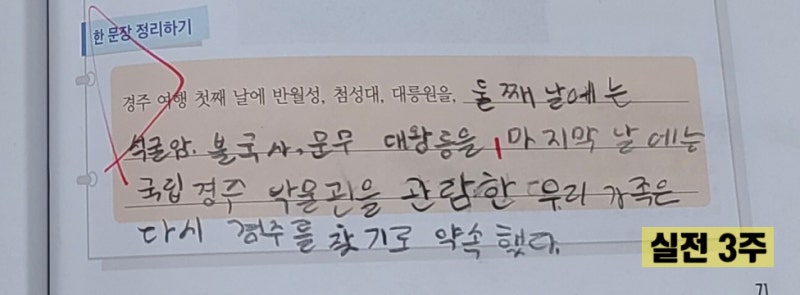 한 문장 정리하기
경주 여행 첫째 날에 반월성, 첨성대, 대릉원을, 둘째 날에는
석굴암, 불국사, 문무 대왕릉을, 마지막 날에는
국립 경주 박물관을 관람한 우리 가족은
다시 경주를 찾기로 약속했다.
실전 3주
71